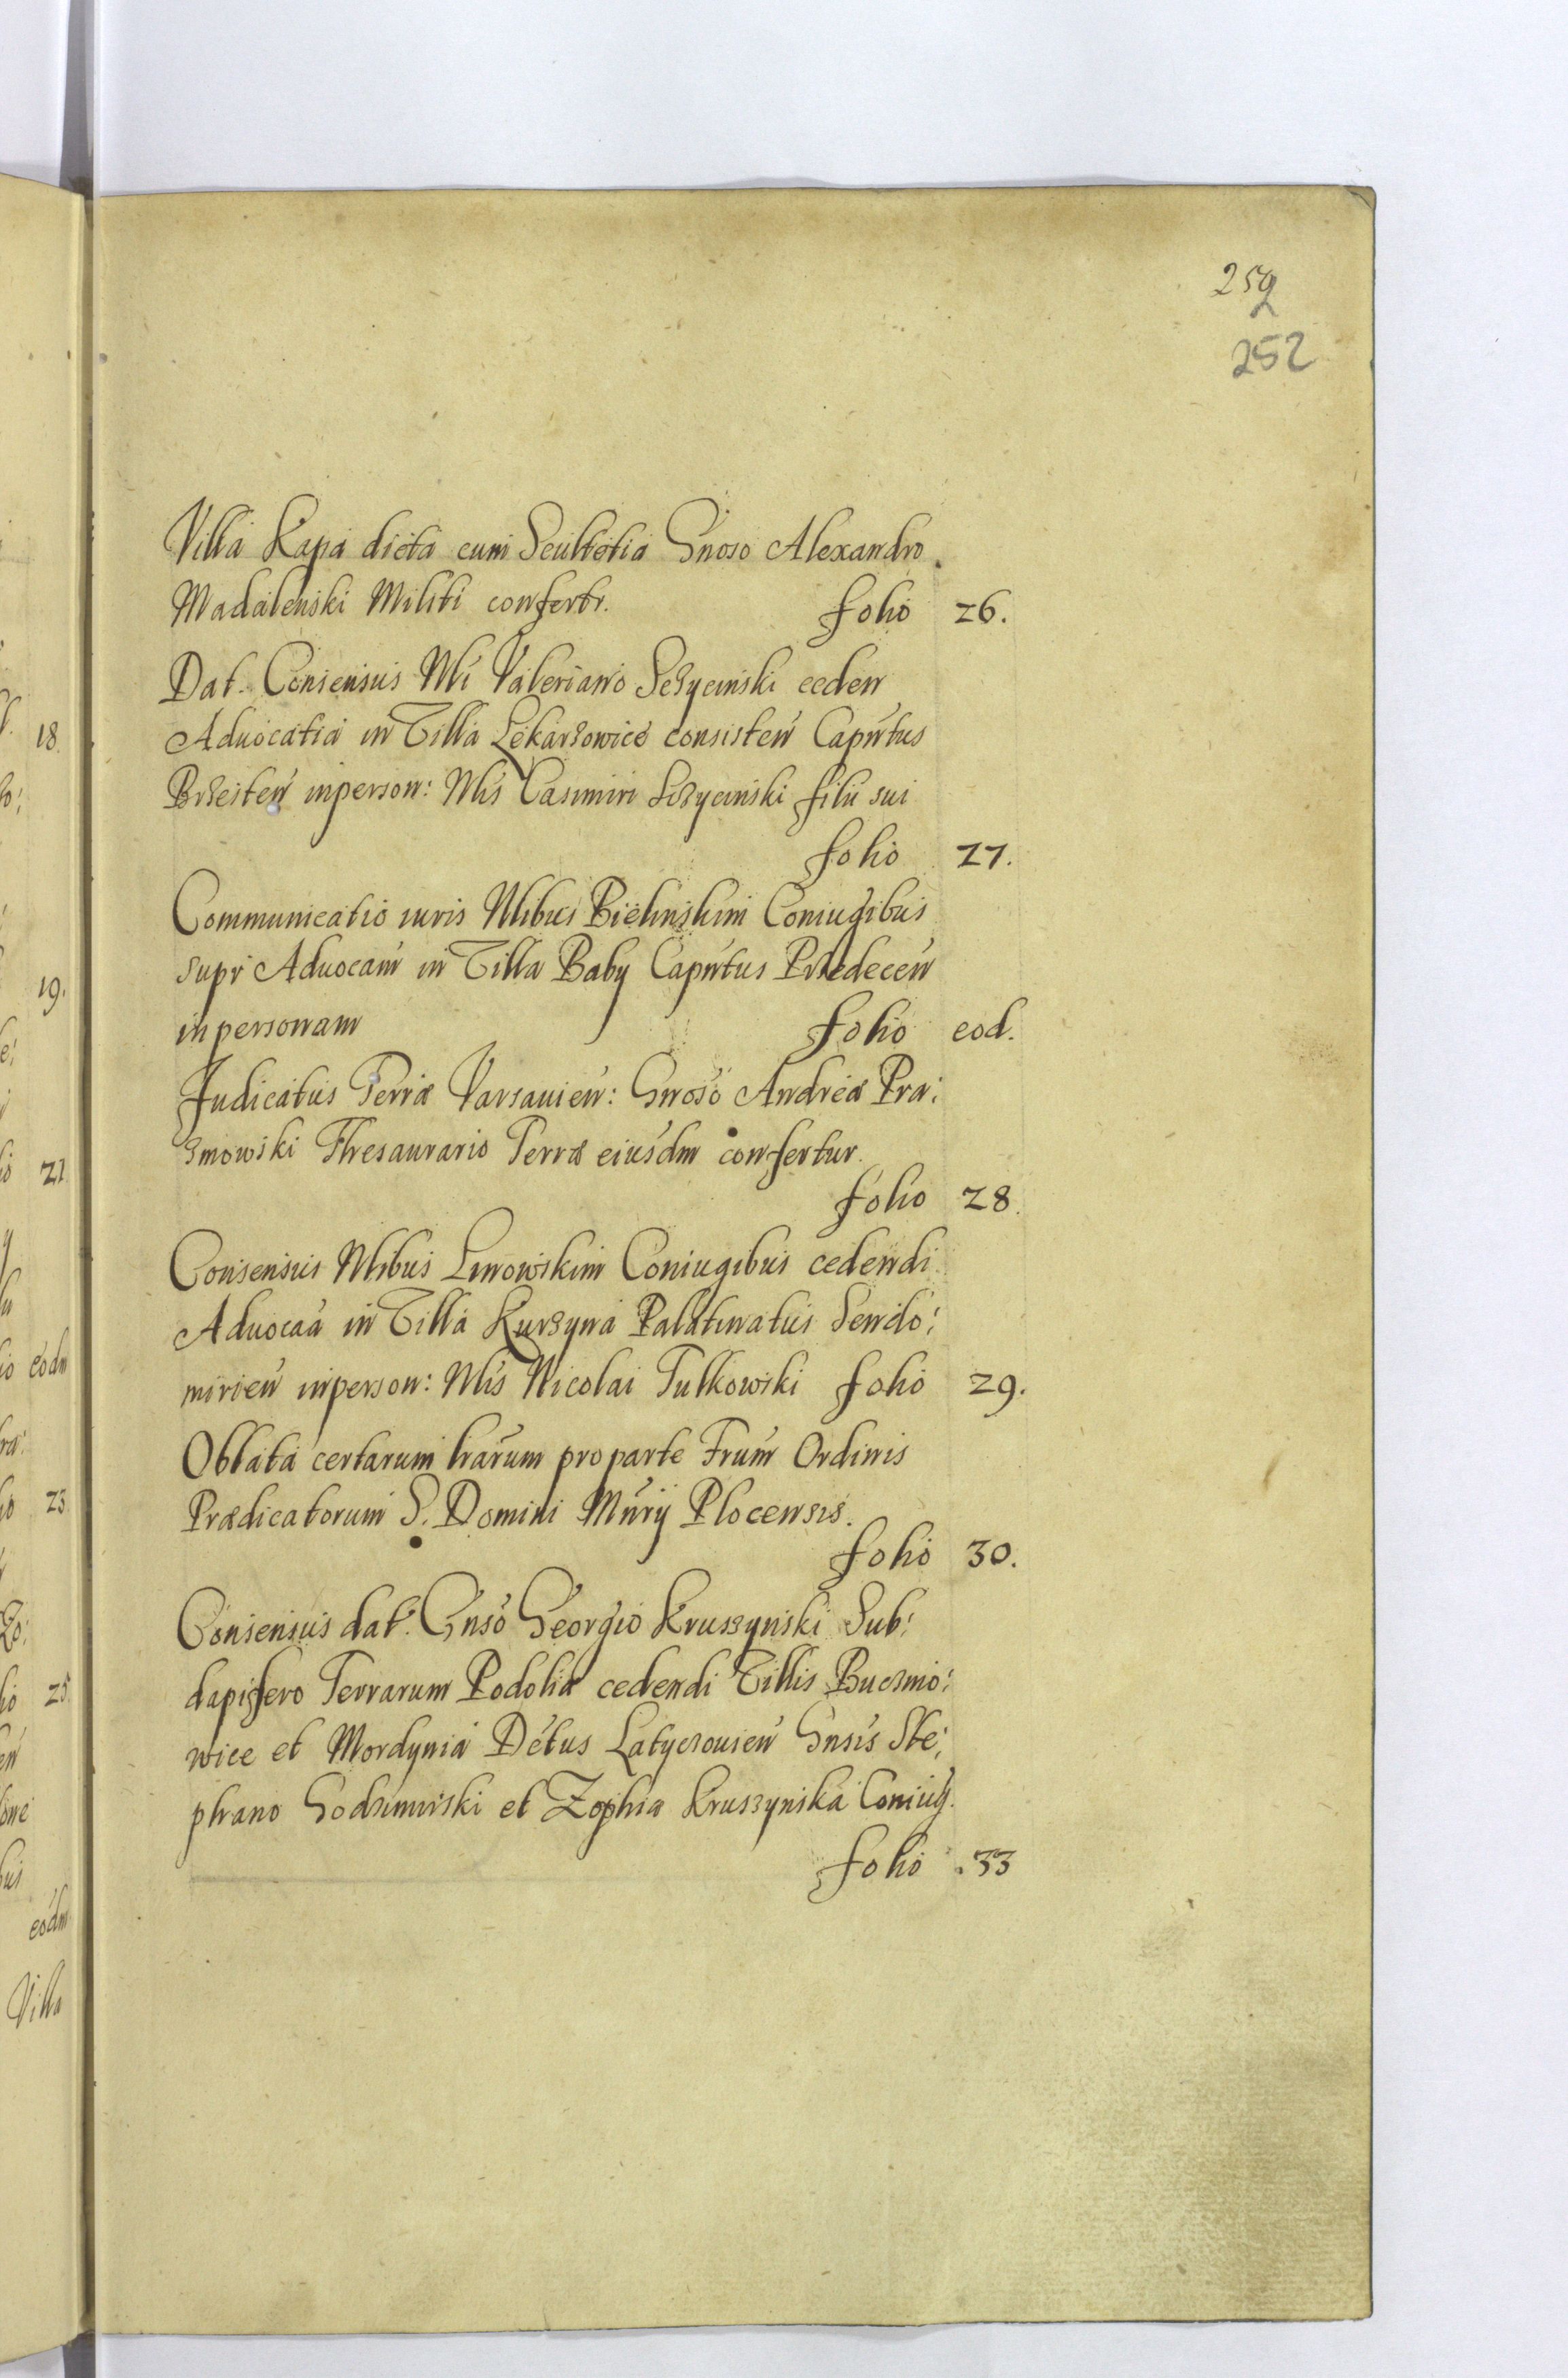 259
252
Villa Kapa dicta cum Scultetia Gnoso Alexandro
Madalenski Militi confertr. folio 26.
Dat. Consensus Mli Valeriano Seżycinski ceden
Aduocatia in Villa Lekarzowice consisten Capntus
Brzesten in person: Mlis Casimiri Seżycinski filii sui
folio 27.
Communicatio iuris Mlibus Bielinskim Coniugibus
supr Aduocam in Villa Baby Capntus Przedecen
in personam folio eod.
Judicatus Terræ Varsauien: Gnoso Andreæ Pra:
zmowski Thesaurario Terræ eiusdm confertur.
folio 28.
Consensus Mlibus Linowskim Coniugibus cedendi
Aduocaa in Villa Kurzyna Palatinatus Sendo:
mirien in person: Mlis Nicolai Tulkowski folio 29.
Oblata certarum lrarum pro parte Frum Ordinis
Prædicatorum S. Domini Mnrij Plocensis.
folio 30.
Consensus dat. Gnso Georgio Kruszynski Sub:
dapifero Terrarum Podoliæ cedendi Villis Bucznio:
wice et Mordynia Dctus Latyczouien Gnsis Ste:
phano Godzimirski et Zophia Kruszynska Coniug.
folio .33
18.
19.
21
eodm
23.
25.
eodm
Villa